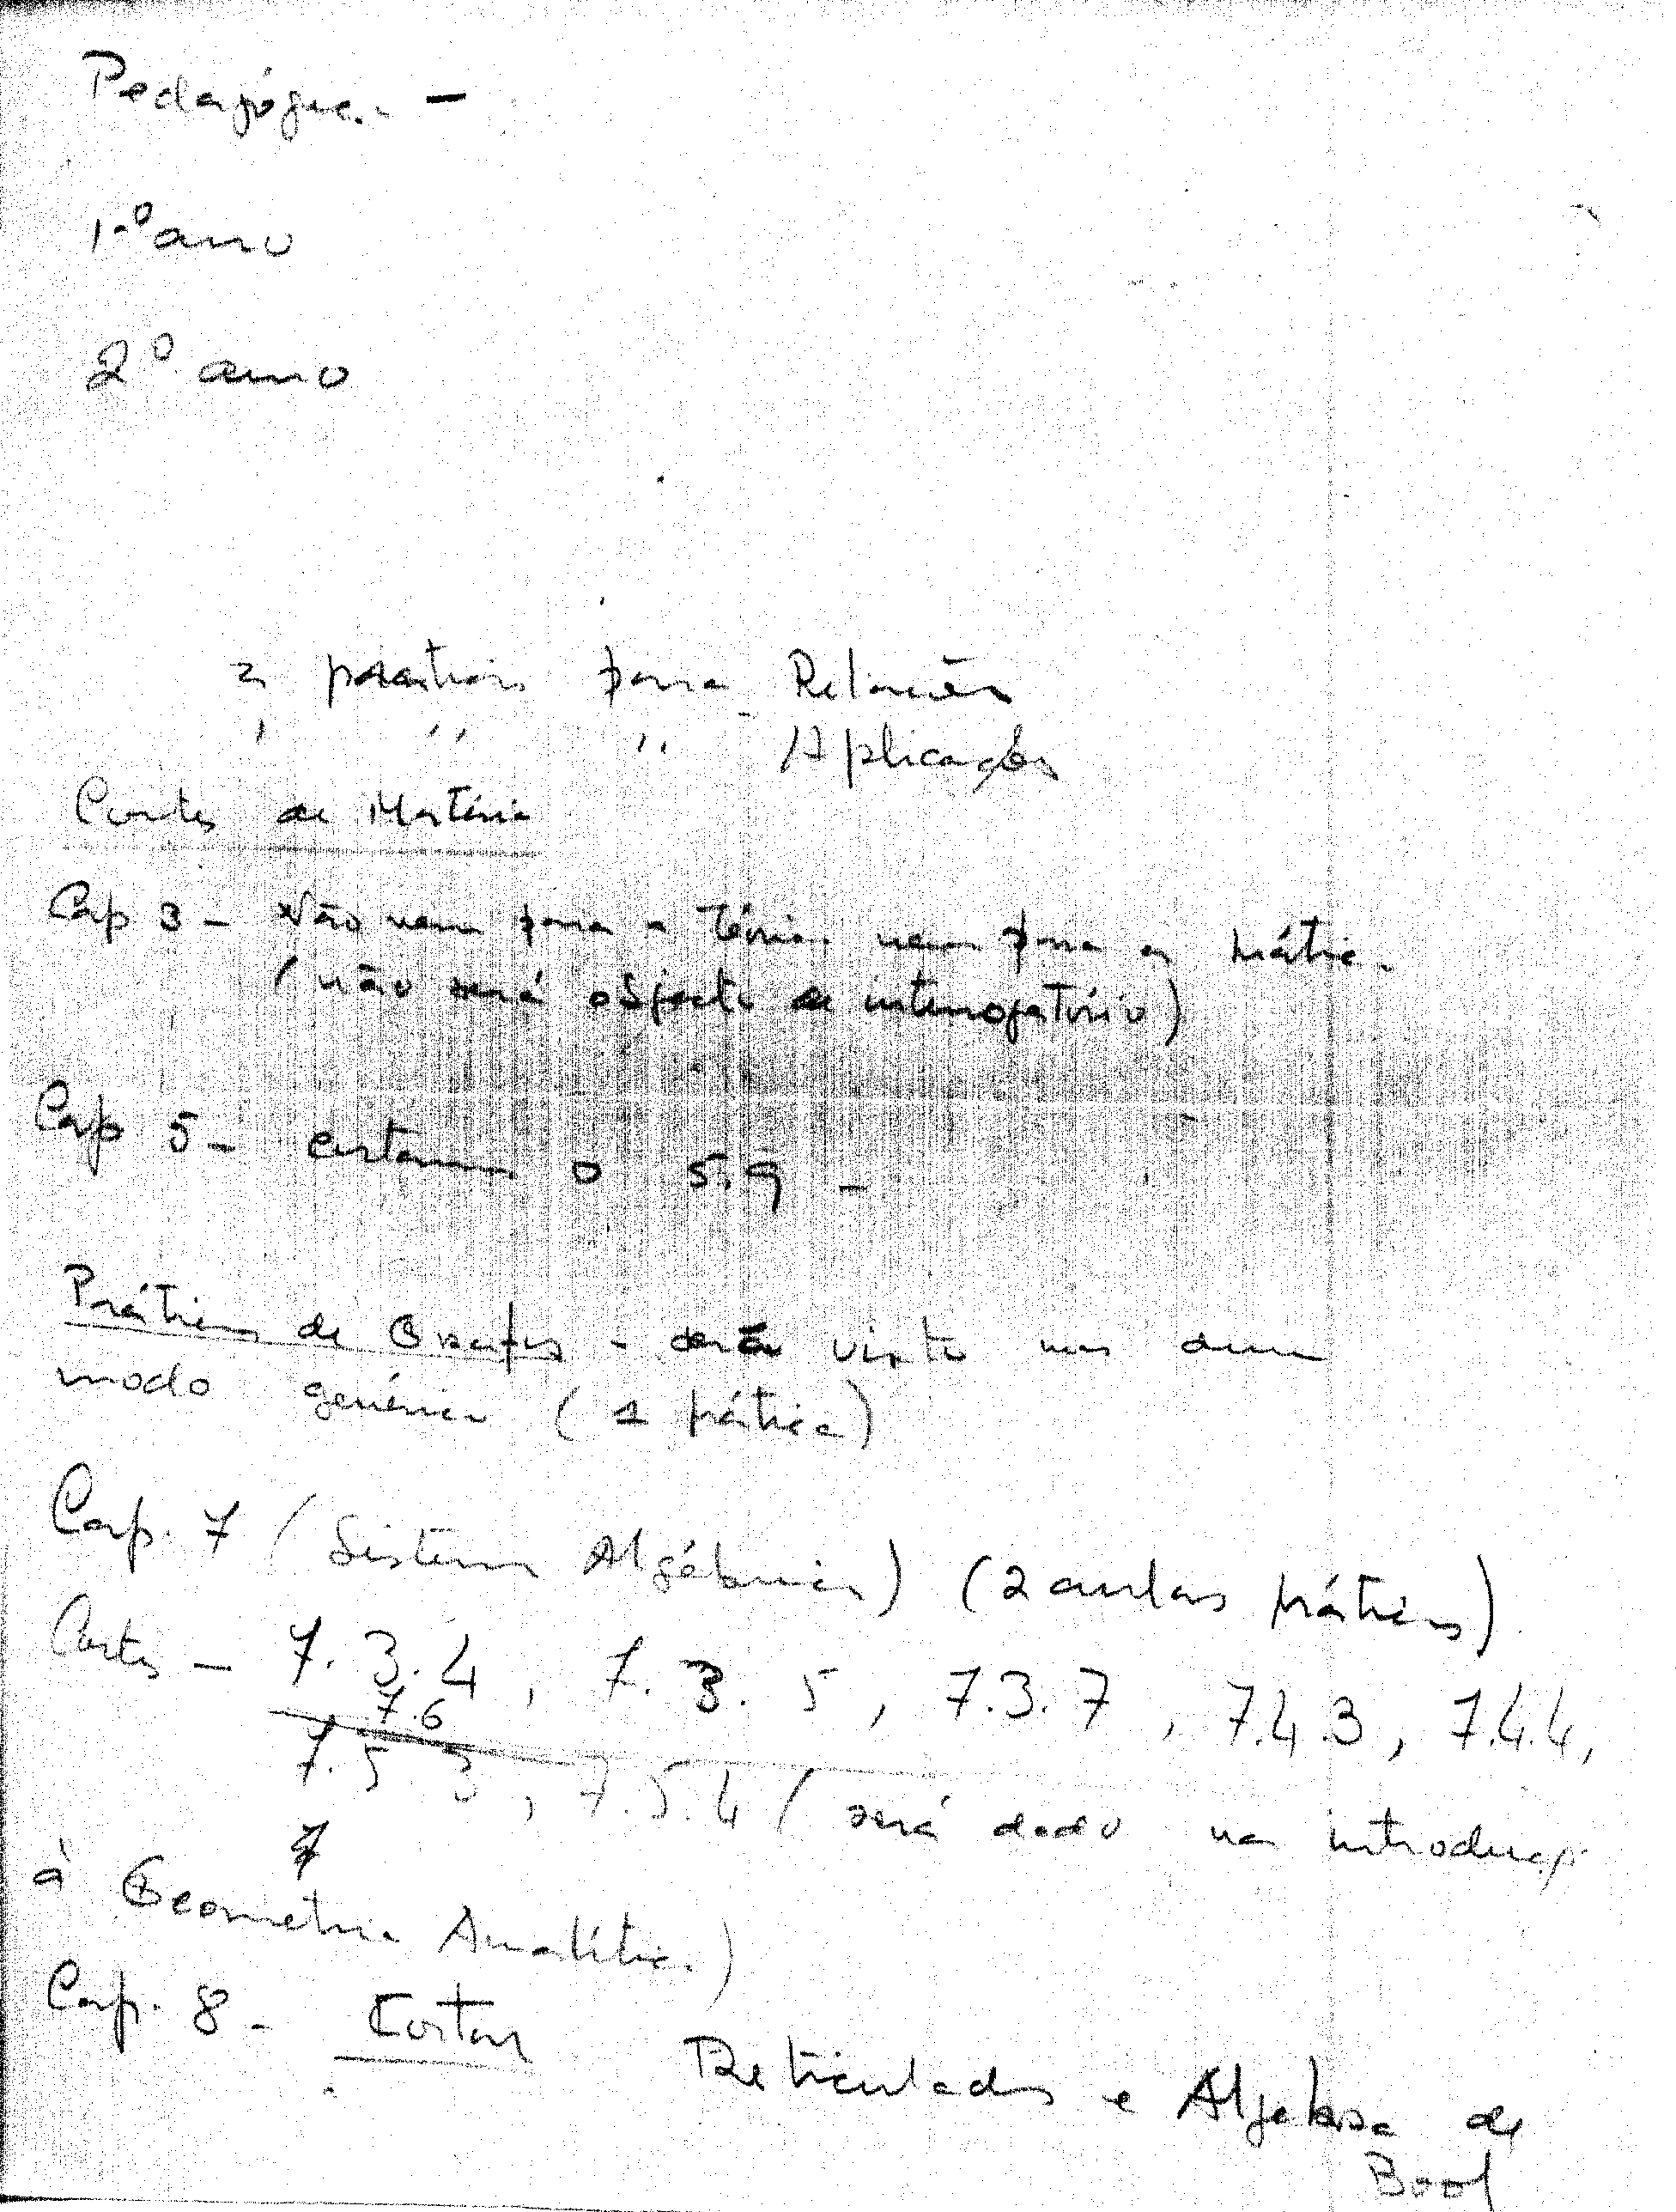 Pedagógica —
1.º ano
2º ano
2 práticas para Relações
" " " Aplicações
Cortes de Matéria
Cap 3 - Não nem para a teórica nem para a prática.
(não será objecto de interrogatório)
Cap 5 - cortamos o 5.9 -
Práticas de Grafos - será visto mas dum
modo genérico (1 prática)
Cap. 7 (Sistemas Algébricos) (2 aulas práticas)
Cortes - 7.3.4, 7.3.5, 7.3.7, 7.4.3, 7.4.4,
7.6
7.5.3, 7.5.4 (será dado na introdução
à Geometria Analítica)
Cap. 8 - Cortar Reticulados e Algebra de
Bool